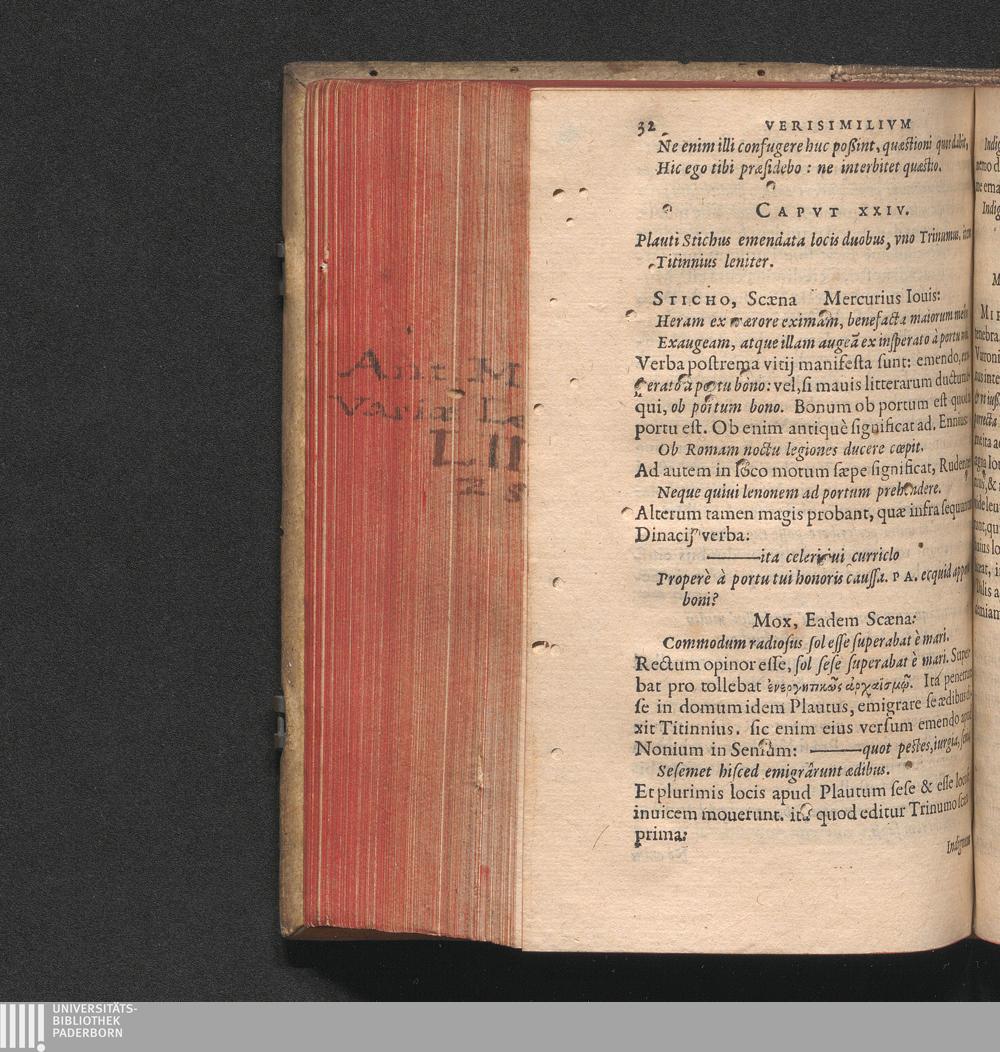 32 VERISIMILIVM
Ne enim illi confugere huc poßint, quæstioni quæ dabit,
Hic ego tibi præsidebo: ne interbitet quæstio.
CAPVT XXIV.
Plauti Stichus emendata locis duobus, vno Trinumus. item
Titinnius leniter.
STICHO, Scæna Mercurius Iouis:
Heram ex mærore eximam, benefacta maiorum meûm
Exaugeam, atque illam augeã ex insperato à portu
Verba postrema vitij manifesta sunt: emendo,
à portu bono: vel, si mauis litterarum ductum
qui, ob portum bono. Bonum ob portum est quod à
portu est. Ob enim antiquè significat ad. Ennius:
Ob Romam noctu legiones ducere cœpit.
Ad autem in loco motum sæpe significat, Rudente
Neque quiui lenonem ad portum prehendere.
Alterum tamen magis probant, quæ infra sequuntur
Dinacij verba:
——ita celeri cui curriclo
Properè à portu tui honoris caussa. PA. ecquid
boni?
Mox, Eadem Scæna:
Commodum radiosus sol esse superabat è mari.
Rectum opinor esse, sol sese superabat è mari. Super-
bat pro tollebat ἐνεργητικῶς ἀρχαϊσμῷ. Ita penetrare
se in domum idem Plautus, emigrare se ædibus di-
xit Titinnius. sic enim eius versum emendo apud
Nonium in Senium: ——quot pestes, iurgia,
Sesemet hisced emigrârunt ædibus.
Et plurimis locis apud Plautum sese & esse locum
inuicem mouerunt. ita quod editur Trinumo scena
prima:
Indignum
Ant M
Variæ Le
LII
UNIVERSITÄTS-
BIBLIOTHEK
PADERBORN